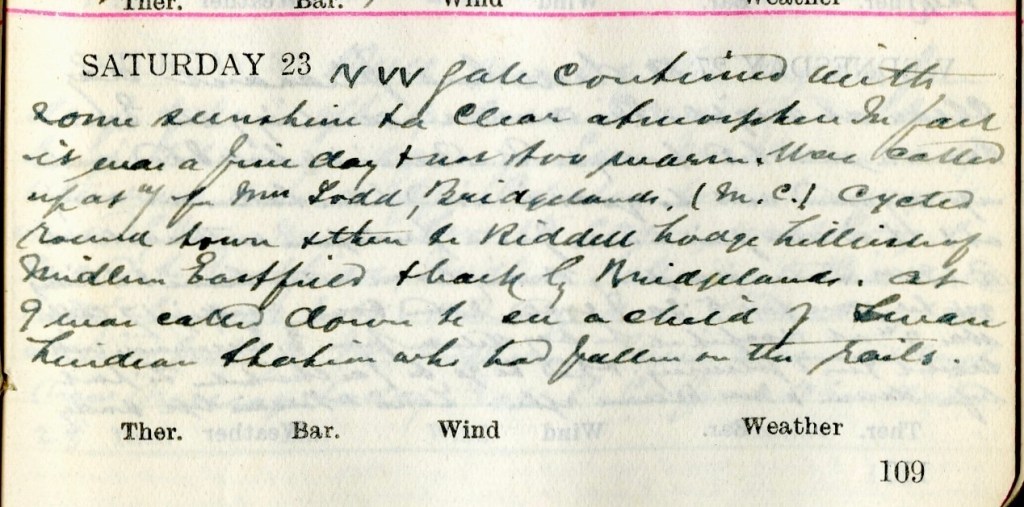 Ther. Bar. Wind Weather
SATURDAY 23 NW gale continued with
some sunshine & a clear atmosphere In fact
it was a fine day & not too warm. Was called
up at for Mrs Todd, Bridgelands. (M.C.) Cycled
round town & then to Riddell Lodge Lilliesleaf
Midlem Eastfield & back by Bridgelands. At
9 was called down to see a child of
Lindean Station who had fallen on the rails.
Ther. Bar. Wind Weather
109